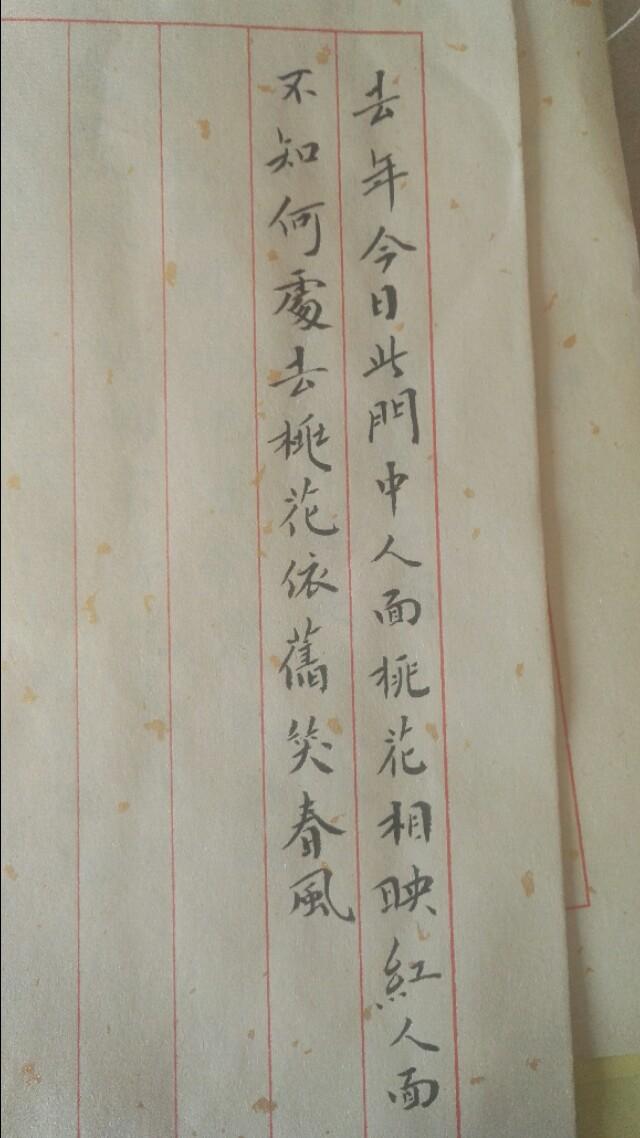 去年今日此門中人面桃花相映紅人面
不知何處去桃花依舊笑春風